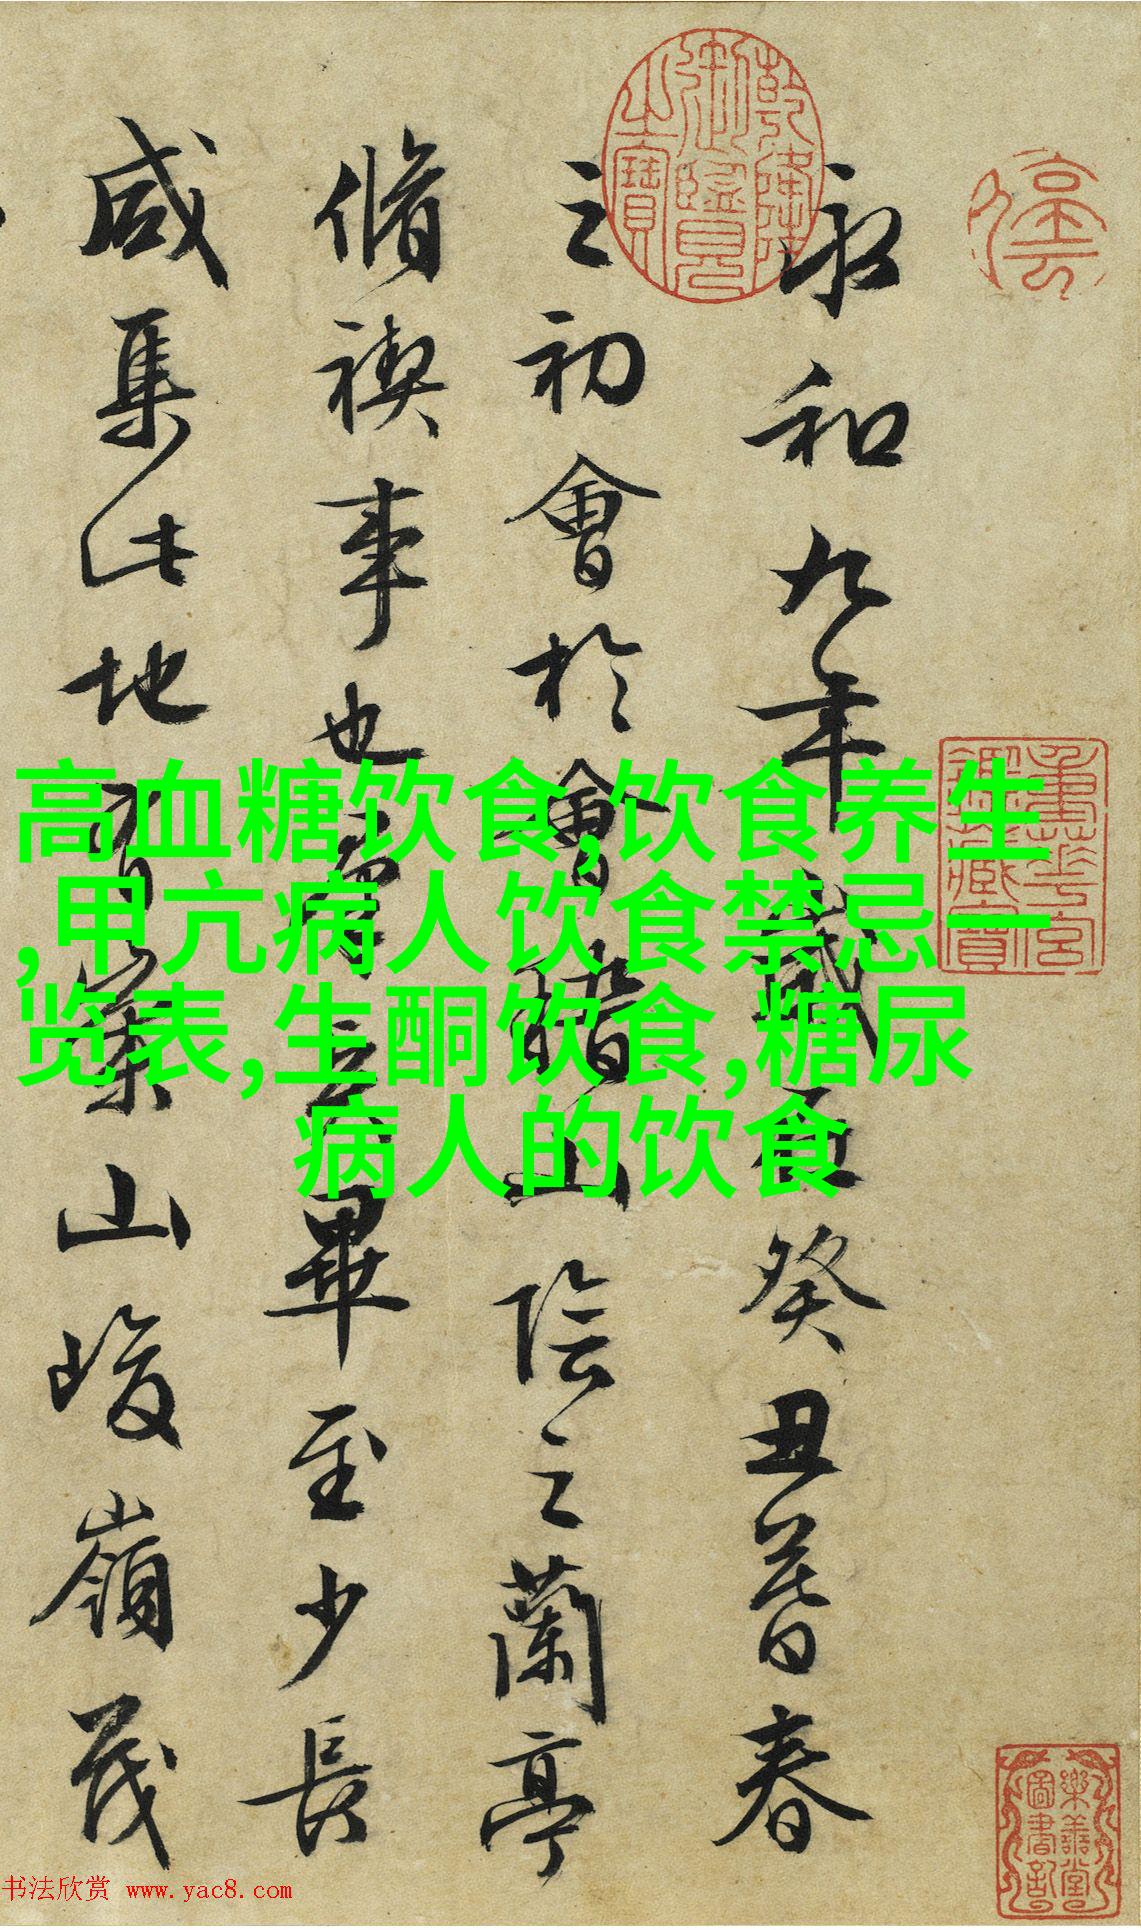 永和九年歲在癸丑暮春
之初會於會稽山陰之蘭亭
脩禊事也羣賢畢至少長
咸集此地有崇山峻嶺茂
乾隆御覽之寶
重華宮鑑藏寶
樂善堂圖書記
高血糖饮食,饮食养生
,甲亢病人饮食禁忌一
览表,生酮饮食,糖尿
病人的饮食
书法欣赏 www.yac8.com